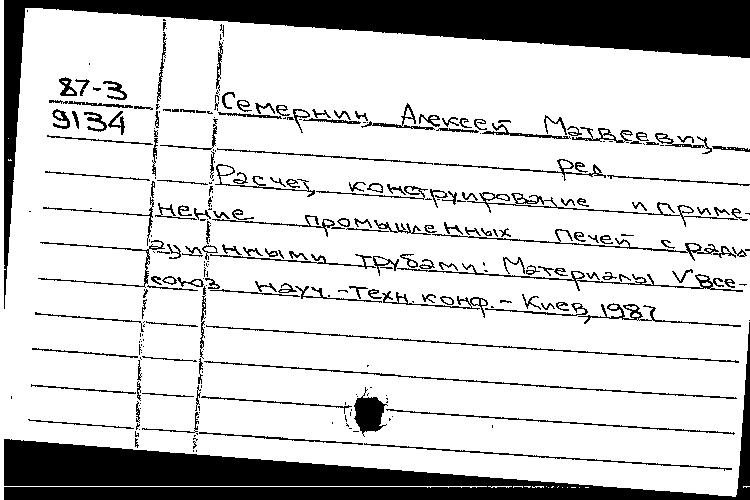 87-3
9134
Семернин, Алексей Матвеевич,
ред.
Расчет, конструирование и приме-
нение промышленных печей с ради-
ационными трубами: Материалы V Все-
союз. науч.-техн. конф. - Киев, 1987